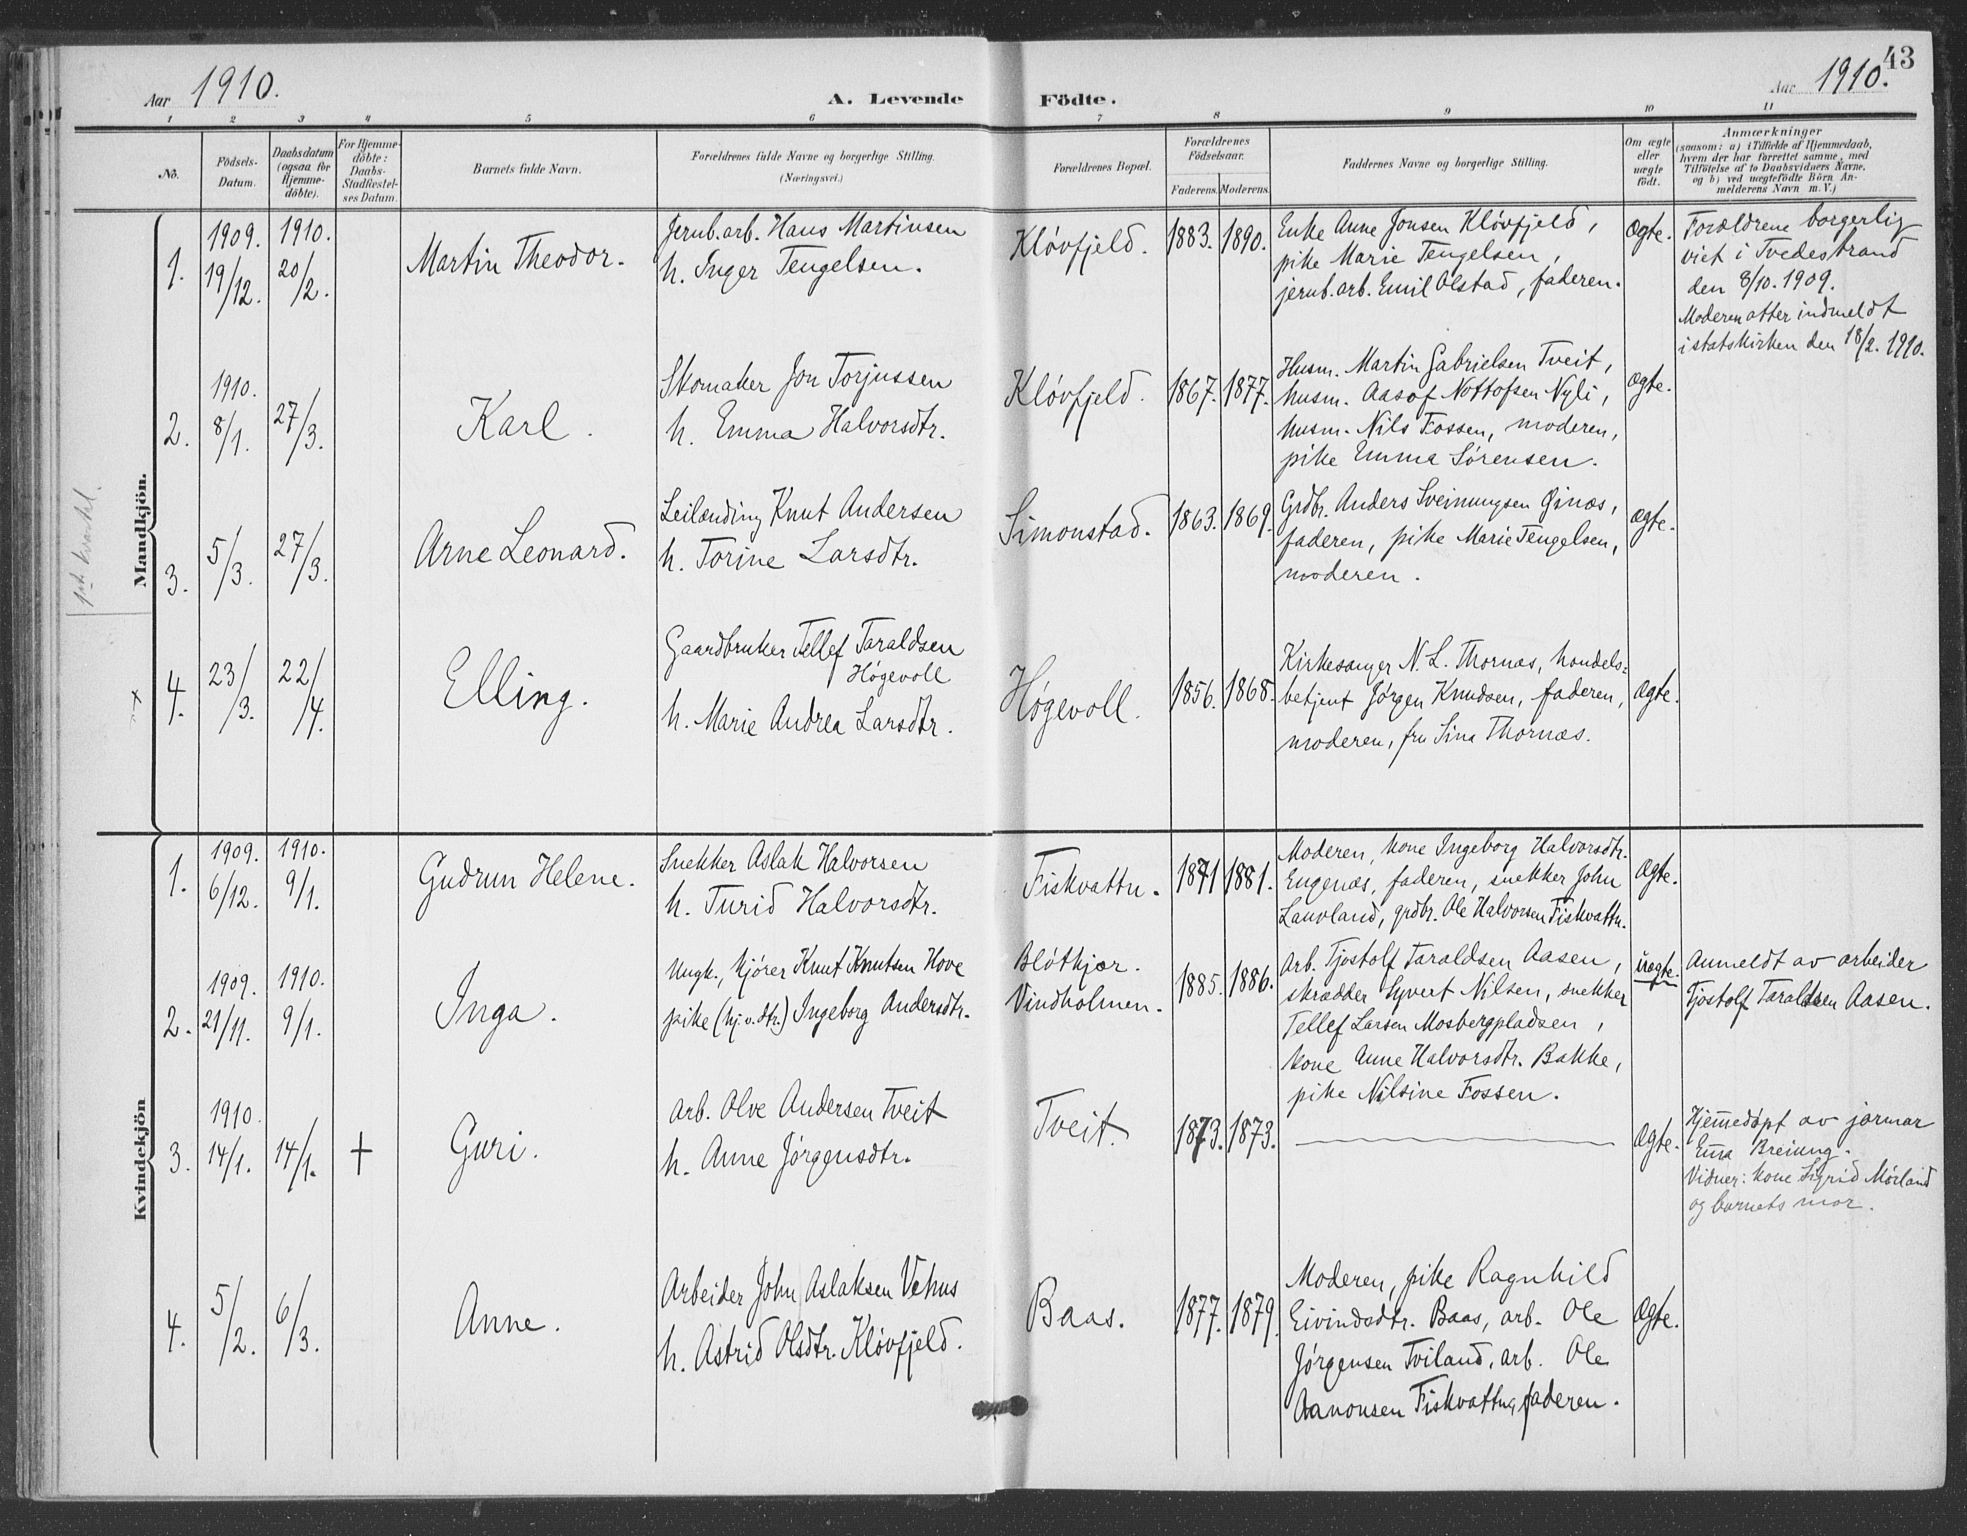 43
Aar 1910.
A. Levende Födte.
Aar 1910.
1 2 3 4 5 6 7 8 9 10 11
No.
Födsels-
Datum.
Daabsdatum
(ogsaa for
Hjemme-
döbte).
For Hjemme-
döbte:
Daabs-
Stadfæstel-
ses Datum.
Barnets fulde Navn.
Forældrenes fulde Navne og borgerlige Stilling.
(Næringsvei.)
Forældrenes Bopæl.
Forældrenes
Födselsaar.
Faderens. Moderens.
Faddernes Navne og borgerlige Stilling.
Om ægte
eller
uægte
født.
Anmærkninger
(saasom: a) i Tilfælde af Hjemmedaab,
hvem der har forrettet samme, med
Tilföielse af to Daabsvidners Navne,
og b) ved uægtefödte Börn An-
melderens Navn m. V.)
Mandkjön.
1st kvartal.
1.
1909.
19/12.
1910.
20/2.
Martin Theodor.
Jernb.arb. Hans Martinsen
h. Inger Tengelsen.
Kløvfjeld.
1883. 1890.
Enke Anne Jonsen Kløvfjeld,
pike Marie Tengelsen,
jernb.arb. Emil Olstad, faderen.
Ægte.
Forældrene borgerlig
viet i Tvedestrand
den 8/10. 1909.
Moderen atter indmeldt
i statskirken den 18/2. 1910.
2.
1910.
8/1.
27/3.
Karl.
Skomaker Jon Torjussen
h. Emma Halvorsdtr.
Kløvfjeld.
1867. 1877.
Husm. Martin Gabrielsen Tveit,
husm. Aasof Nottofsen Nyli,
husm. Nils Fossen, moderen,
pike Emma Sørensen.
Ægte.
3.
5/3.
27/3.
Arne Leonard.
Leilænding Knut Andersen
h. Torine Larsdtr.
Simonstad.
1863. 1869.
Grdbr. Anders Sveinungsen Øinæs,
faderen, pike Marie Tengelsen,
moderen.
Ægte.
4.
23/3.
22/4.
Elling.
Gaardbruker Tellef Taraldsen
Høgevoll
h. Marie Andrea Larsdtr.
Høgevoll.
1856. 1868.
Kirkesanger N. L. Thornæs, handels-
betjent Jørgen Knudsen, faderen,
moderen, fru Sina Thornæs.
Ægte.
Kvindekjön
1.
1909.
6/12.
1910.
9/1.
Gudrun Helene.
Snekker Aslak Halvorsen
h. Turid Halvorsdtr.
Fiskvattn.
1871 1881.
Moderen, kone Ingeborg Halvorsdtr.
Engenæs, faderen, snekker John
Lauvland, grdbr. Ole Halvorsen Fiskvattn.
Ægte.
2.
1909.
21/11.
1910.
9/1.
Inga.
Ungk., kjører Knut Knutsen Hove
pike (hj.v.dtr.) Ingeborg Andersdtr.
Bløtkjær.
Vindholmen.
1885. 1886.
Arb. Tjostolf Taraldsen Aasen,
skrædder Syvert Nilsen, snekker
Tellef Larsen Mosbergpladsen,
kone Anne Halvorsdtr. Bakke,
pike Nilsine Fossen.
uægte.
Anmeldt av arbeider
Tjostolf Taraldsen Aasen.
3.
1910.
14/1.
14/1.
+
Guri.
Arb. Olve Andersen Tveit
h. Anne Jørgensdtr.
Tveit.
1873. 1873.
Ægte.
Hjemmedøpt av jormor
Breiung.
Vidner: kone Sigrid Mørland
og barnets mor.
4.
5/2.
6/3.
Anne.
Arbeider John Aslaksen Vehus
h. Astrid Olsdtr. Kløvfjeld.
Baas.
1877. 1879.
Moderen, pike Ragnhild
Eivindsdtr. Baas, arb. Ole
Jørgensen Tviland, arb. Ole
Aanonsen Fiskvattn, faderen.
Ægte.